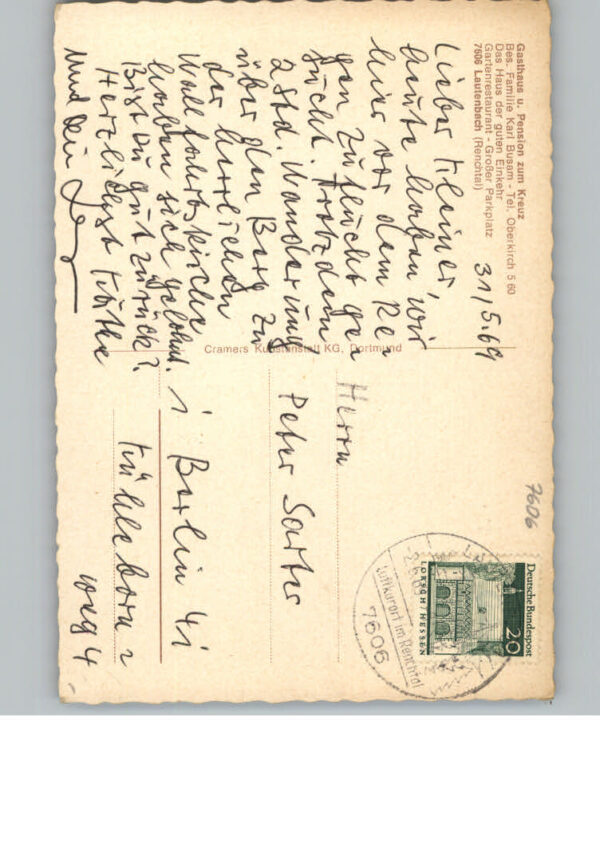 Gasthaus u. Pension zum Kreuz
Bes. Familie Karl Busam - Tel. Oberkirch 5 60
Das Haus der guten Einkehr
Gartenrestaurant - Großer Parkplatz
7606 Lautenbach (Renchtal)
31/5.69
Lieber Kleiner,
heute haben wir
hier vor dem Re-
gen Zuflucht ge-
sucht. Trotzdem
2 Std. Wanderung
über den Berg zu
der herrlichen
Wallfahrtskirche
haben sich gelohnt.
Bist Du gut zurück?
Herzlichst Käthe
und Dein
Cramers Kunstanstalt KG, Dortmund
Herrn
Peter Sartes
1 Berlin 41
Kühleborn-
weg 4
7606
Deutsche Bundespost
20
LORSCH / HESSEN
Luftkurort im Renchtal
7606